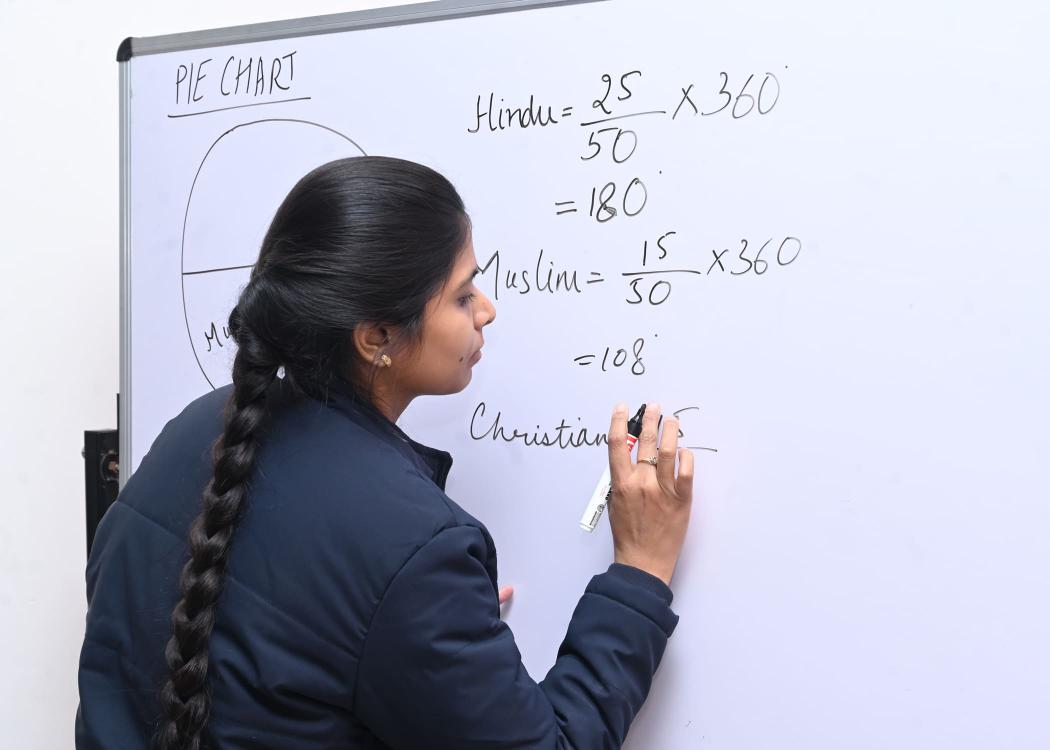 PIE CHART
Hindu = 25/50 × 360°
= 180°
Muslim = 15/50 × 360
= 108°
Christian 5
Mu